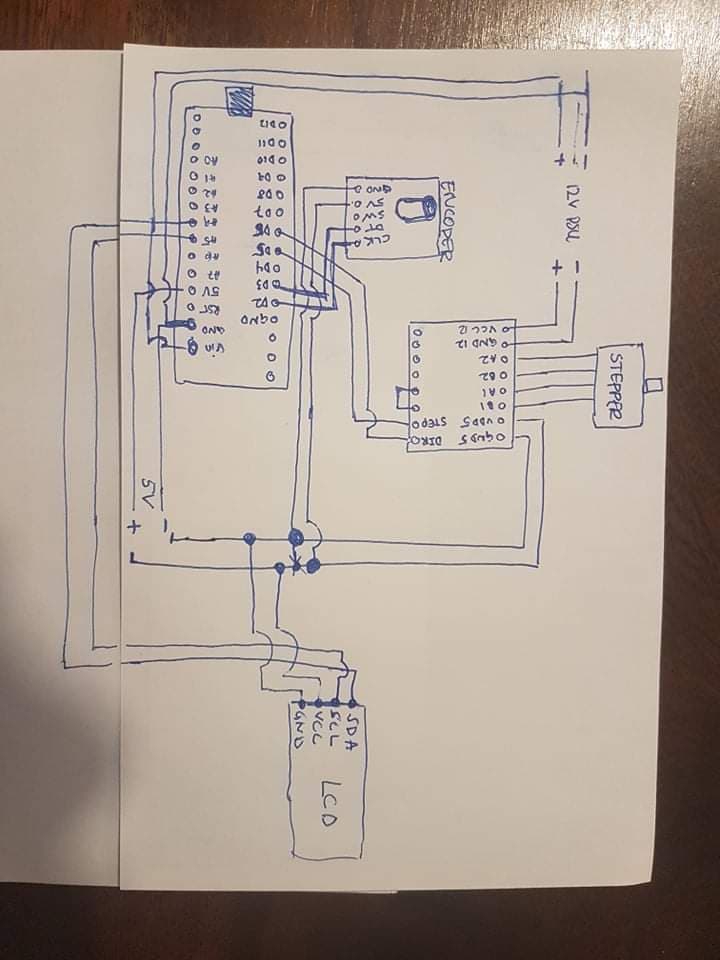 LCD
SDA
SCL
VCC
GND
-
+
5V
GND 5
VDD 5
B1
A1
B2
A2
GND 12
VCC 12
DIR
STEP
STEPPER
-
+
12V PSU
-
+
ENCODER
CLK
DT
SW
5V
GND
GND
D2
D3
D4
D5
D6
D7
D8
D9
D10
D11
D12
Vin
GND
RST
5V
A7
A6
A5
A4
A3
A2
A1
A0